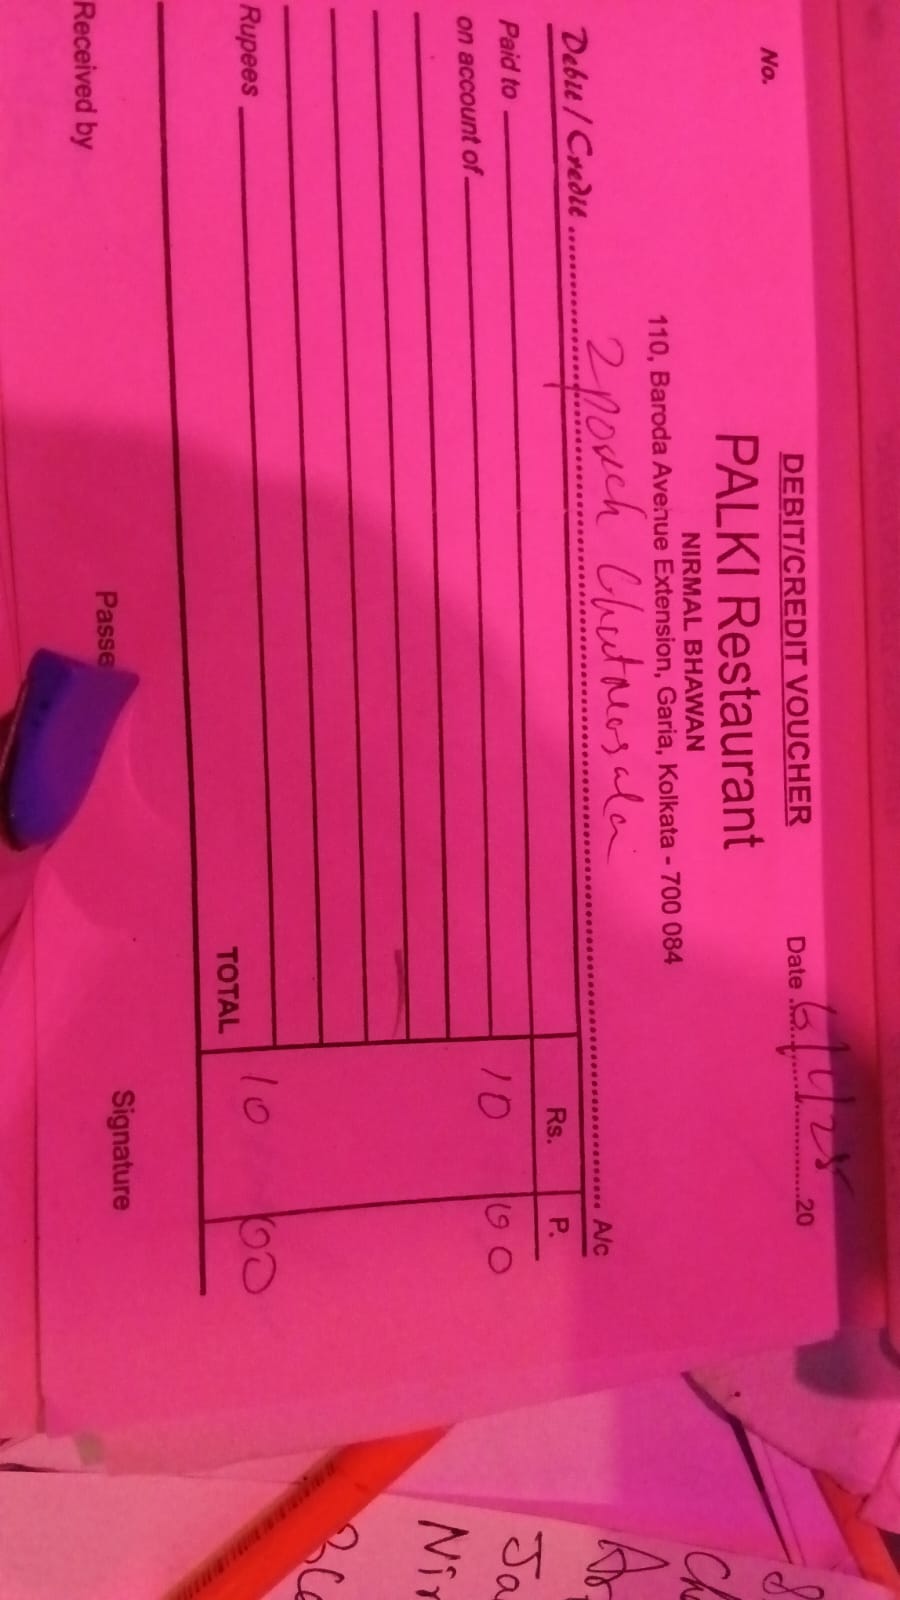 DEBIT/CREDIT VOUCHER
No.
Date 6/11/25 20
PALKI Restaurant
NIRMAL BHAWAN
110, Baroda Avenue Extension, Garia, Kolkata - 700 084
2 pouch Chutmosala
Debit / Credit A/c
Rs. P.
Paid to
10 00
on account of
Rupees
TOTAL 10 00
Received by
Passe
Signature
Ja
Nir